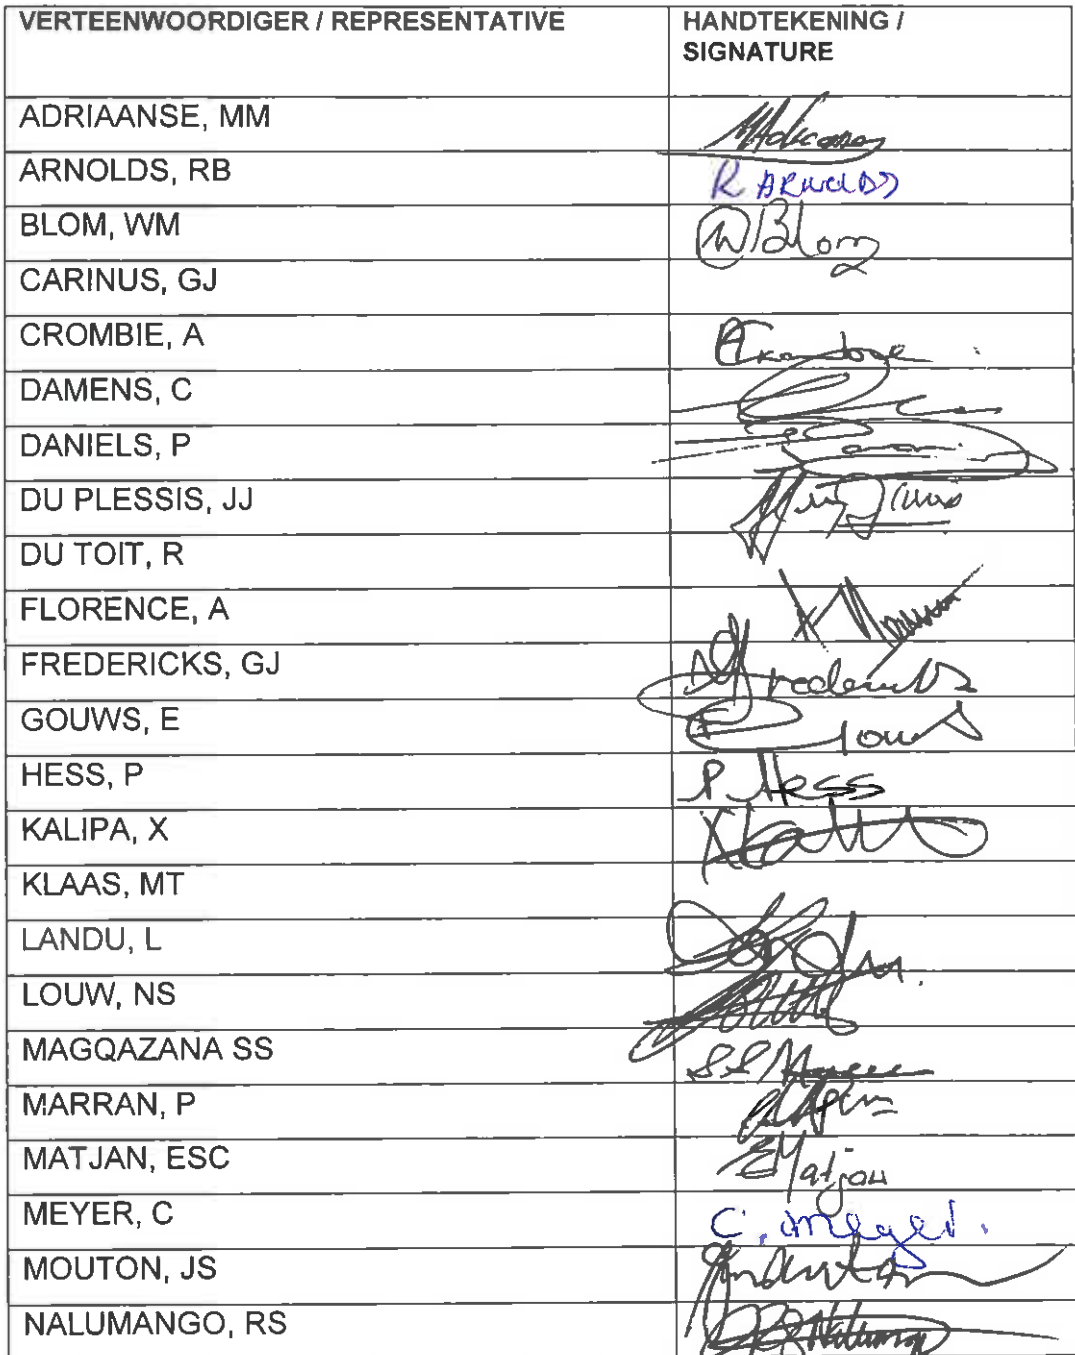 VERTEENWOORDIGER / REPRESENTATIVE
HANDTEKENING /
SIGNATURE
ADRIAANSE, MM
ARNOLDS, RB
R ARNOLDS
BLOM, WM
W Blom
CARINUS, GJ
CROMBIE, A
DAMENS, C
DANIELS, P
DU PLESSIS, JJ
DU TOIT, R
FLORENCE, A
FREDERICKS, GJ
Fredericks
GOUWS, E
HESS, P
P. Hess
KALIPA, X
KLAAS, MT
LANDU, L
LOUW, NS
MAGQAZANA SS
MARRAN, P
MATJAN, ESC
EMatjan
MEYER, C
C. Meyer.
MOUTON, JS
NALUMANGO, RS